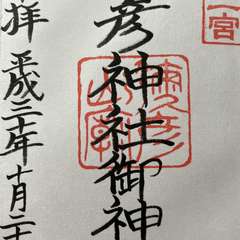 一宮
彦神社御神
拝 平成三十年十月二十